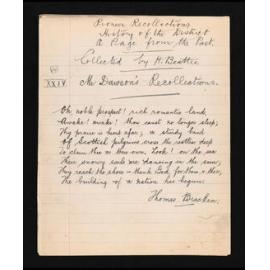 Pioneer Recollections.
History of the District.
A Page from the Past.
Collected by H. Beattie
XXIV
Mr Dawson's Recollections.
Oh, noble prospect! rich romantic land,
Awake! awake! thou canst no longer sleep;
Thy prime is heard afar; a sturdy band
Of Scottish pilgrims cross the restless deep
To claim thee as their own. Look! on the sea
Their snowy sails are dancing in the sun,
They reach the shore – thank God, for them & thee,
The building of a nation has begun.
Thomas Bracken.